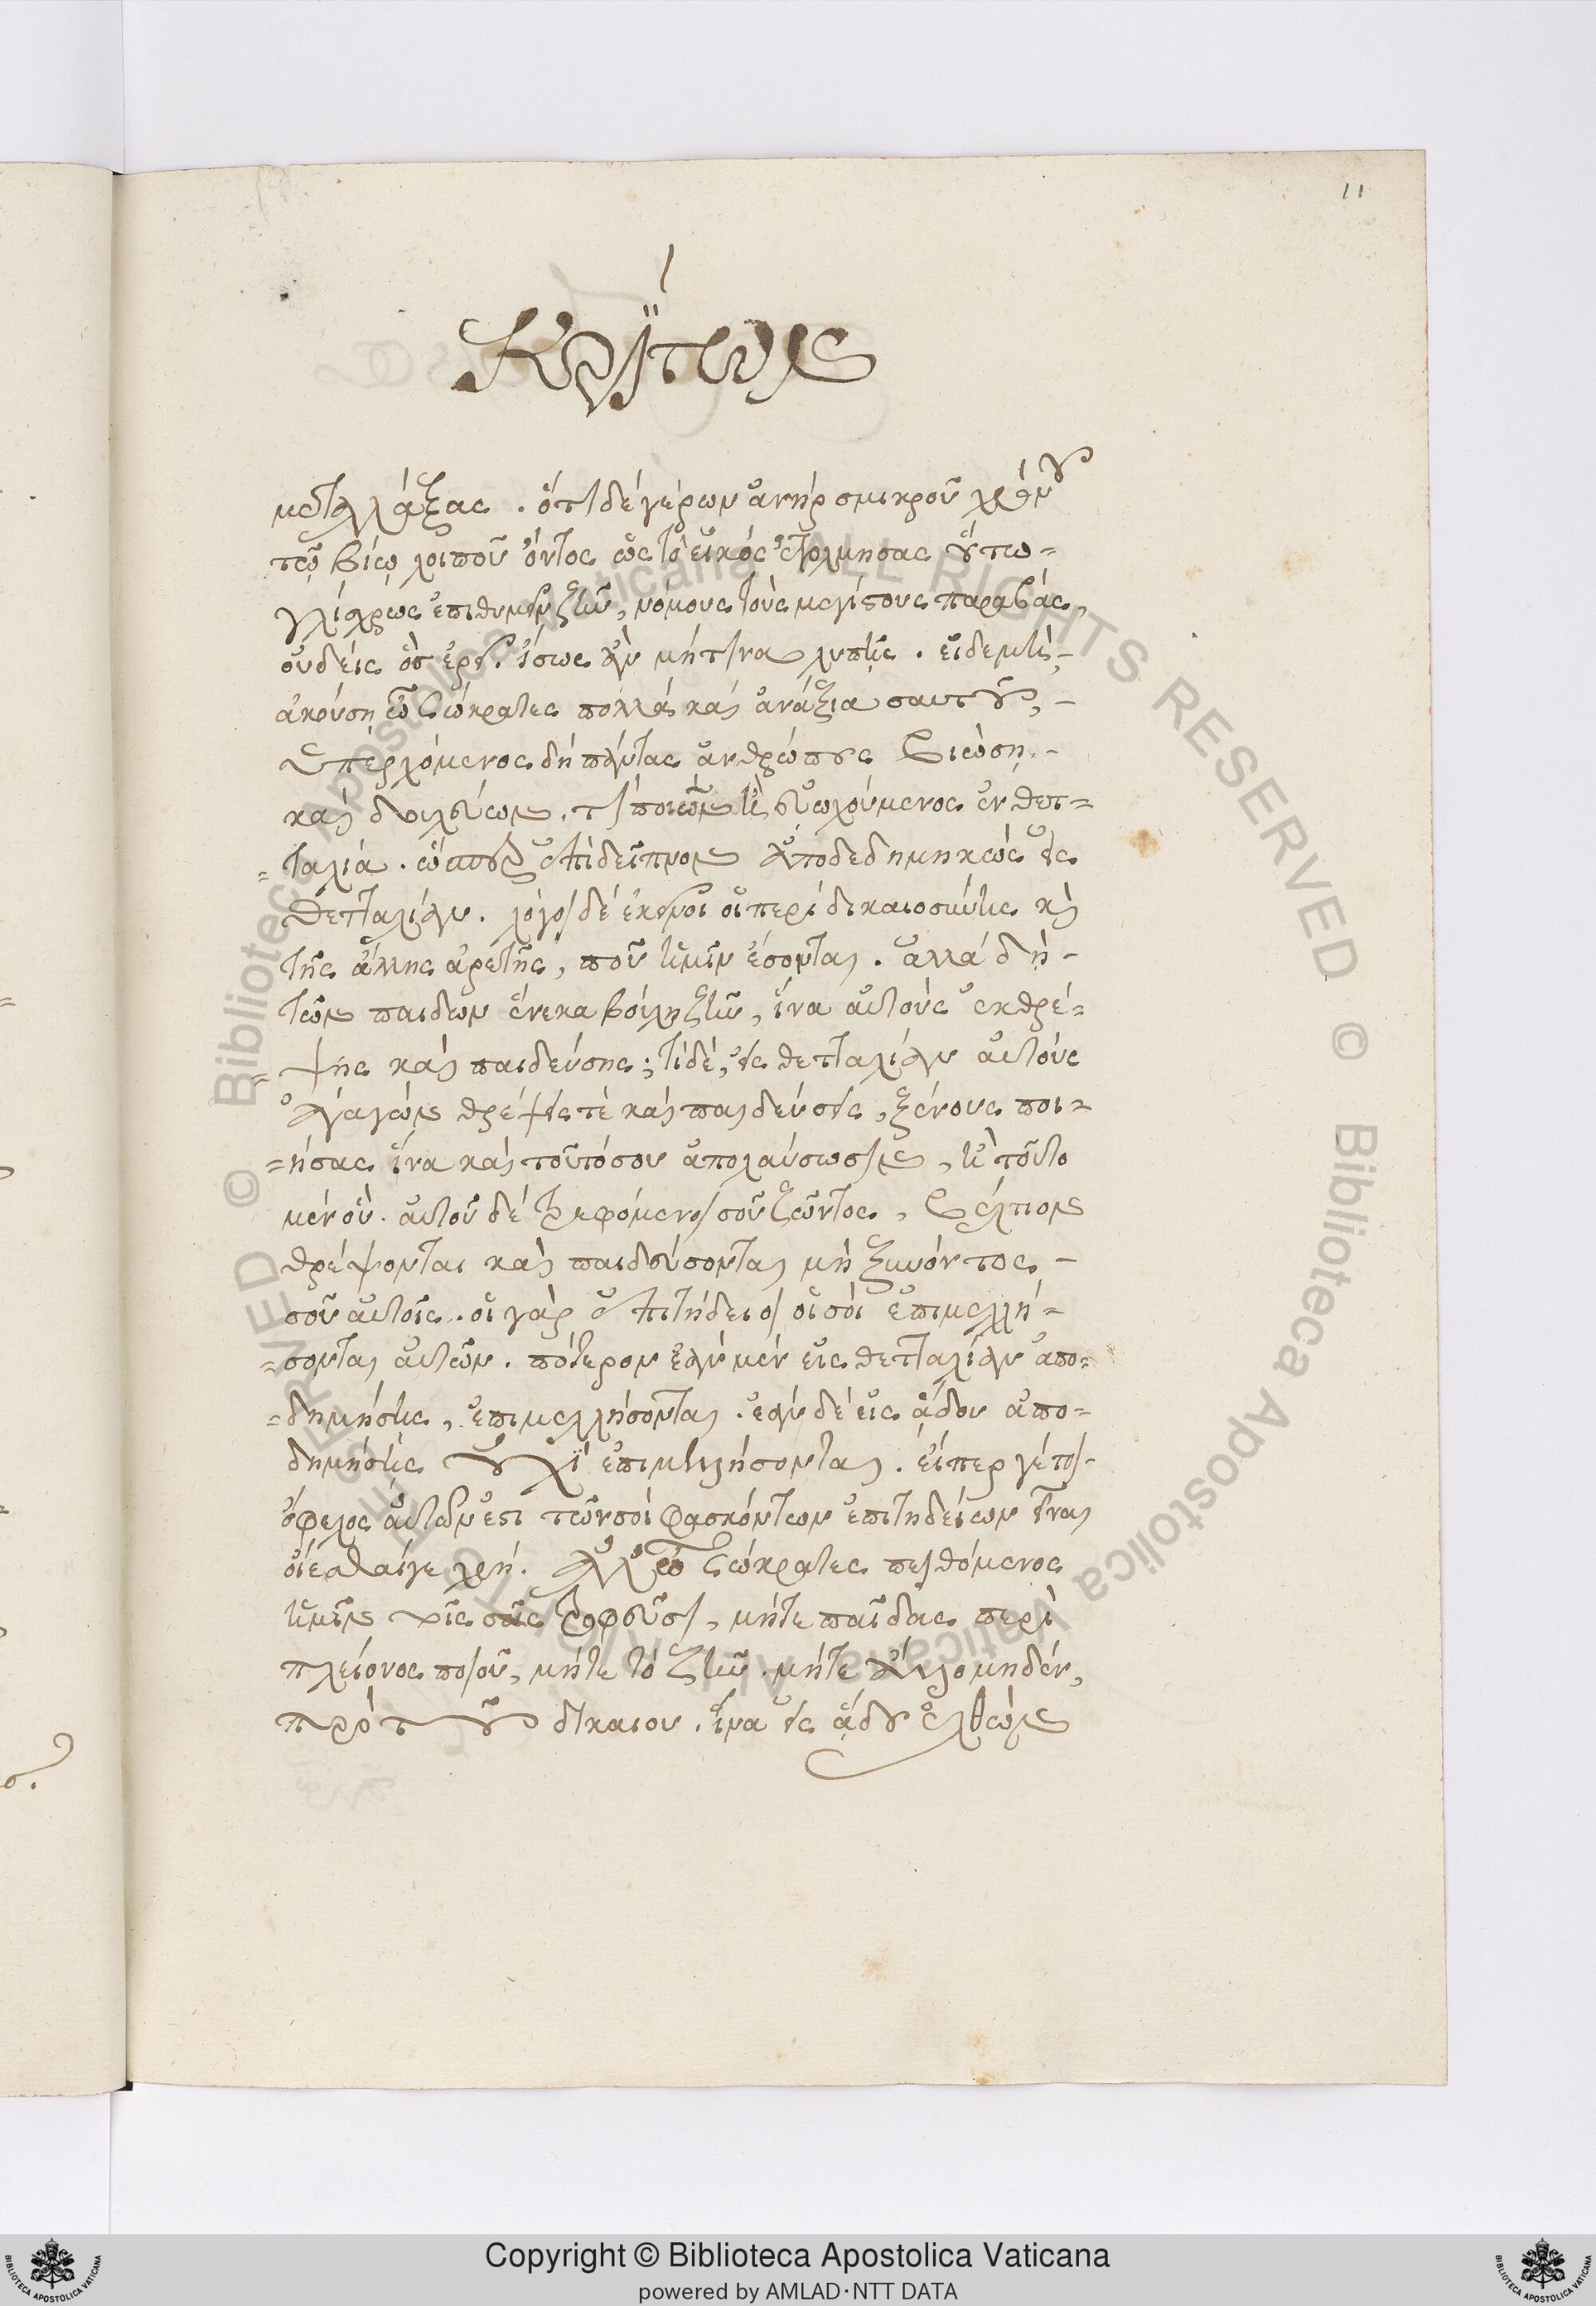 11
Κρίτων
μεταλλάξας. ὅτι δὲ γέρων ἀνὴρ σμικροῦ χρόνου
τῷ βίῳ λοιποῦ ὄντος ὡς τὸ εἰκὸς ἐτόλμησας οὕτω-
γλίσχρως ἐπιθυμεῖν ζῆν, νόμους τοὺς μεγίστους παραβάς,
οὐδεὶς ὃς ἐρεῖ. ἴσως ἂν μή τινα λυπῇς. εἰ δὲ μὴ,-
ἀκούσῃ ὦ Σώκρατες πολλὰ καὶ ἀνάξια σαυτοῦ,-
ὑπερχόμενος δὴ πάντας ἀνθρώπους βιώσῃ.-
καὶ δουλεύων. τί ποιῶν ἢ εὐωχούμενος ἐν θετ-
-ταλίᾳ. ὥσπερ ἐπὶ δεῖπνον ἀποδεδημηκὼς εἰς
θετταλίαν. λόγοι δὲ ἐκεῖνοι οἱ περὶ δικαιοσύνης καὶ
τῆς ἄλλης ἀρετῆς, ποῦ ἡμῖν ἔσονται. ἀλλὰ δὴ-
τῶν παίδων ἕνεκα βούλει ζῆν, ἵνα αὐτοὺς ἐκθρέ-
-ψῃς καὶ παιδεύσῃς; τί δέ, εἰς θετταλίαν αὐτοὺς
ἀγαγὼν θρέψεις τὲ καὶ παιδεύσεις, ξένους ποι-
-ήσας ἵνα καὶ τοῦτό σου ἀπολαύσωσιν, ἢ τοῦτο
μὲν οὔ. αὐτοῦ δὲ τρεφόμενοι σοῦ ζῶντος, βέλτιον
θρέψονται καὶ παιδεύσονται μὴ ξυνόντος-
σοῦ αὐτοῖς. οἱ γὰρ ἐπιτήδειοι οἱ σοὶ ἐπιμελή-
-σονται αὐτῶν. πότερον ἐὰν μὲν εἰς θετταλίαν ἀπο-
-δημήσῃς, ἐπιμελήσονται. ἐὰν δὲ εἰς ᾅδου ἀπο-
δημήσῃς οὐχὶ ἐπιμελήσονται. εἴπερ γέ τοι-
ὄφελος αὐτῶν ἐστι τῶν σοὶ φασκόντων ἐπιτηδείων εἶναι
οἴεσθαί γε χρή. ἀλλ' ὦ Σώκρατες πειθόμενος
ἡμῖν τοῖς σοῖς τροφεῦσι, μήτε παῖδας περὶ
πλείονος ποιοῦ, μήτε τὸ ζῆν. μήτε ἄλλο μηδέν,
πρὸ τοῦ δικαίου. ἵνα εἰς ᾅδου ἐλθὼν
Copyright © Biblioteca Apostolica Vaticana
powered by AMLAD·NTT DATA